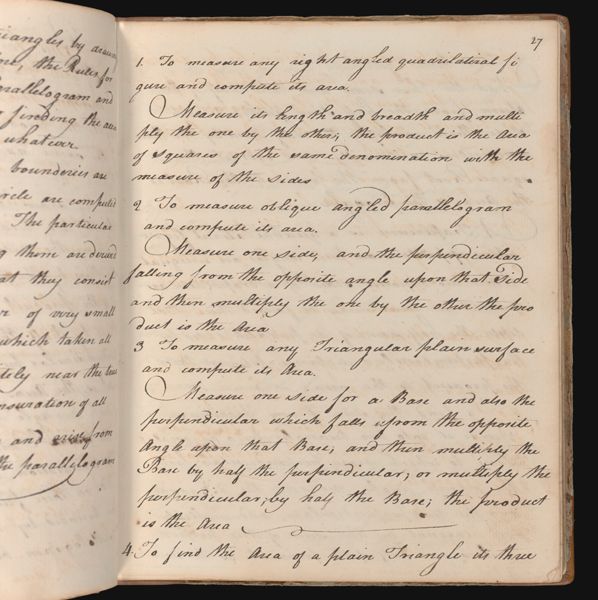 riangles by
the Rules for
arallelogram and
finding the area
whatever
bounderies are
ircle are computed
The particular
g them are derived
at they consist
r of very small
which taken all
itely near the true
ensuration of all
and from
the parallelogram
27
1. To measure any right angled quadrilateral fi
gure and compute its area.
Measure its length and breadth and multi
ply the one by the other; the product is the Area
of squares of the same denomination with the
measure of the sides
2 To measure oblique angled parallelogram
and compute its area.
Measure one side, and the perpendicular
falling from the opposite angle upon that Side
and then multiply the one by the other the pro
duct is the Area
3 To measure any Triangular plain surface
and compute its Area.
Measure one side for a Base and also the
perpendicular which falls from the opposite
Angle upon that Base, and then multiply the
Base by half the perpendicular; or multiply the
perpendicular, by half the Base; the product
is the Area
4. To find the Area of a plain Triangle its three